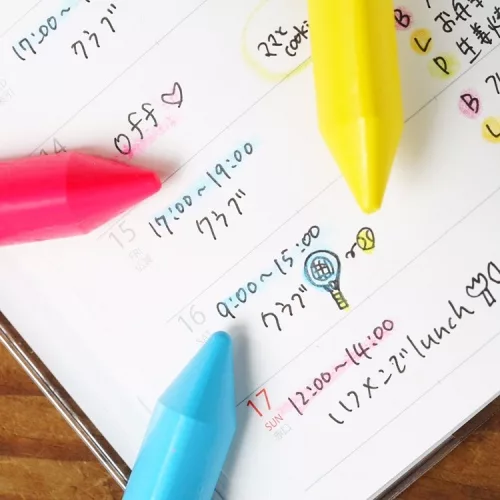 17:00~
クラブ
ママと
cookie
B
L
お弁当
P
生姜焼
B
L
14
Off♡
15
17:00~19:00
クラブ
16
9:00~15:00
クラブ
17
SUN
12:00~14:00
いつメンでlunch